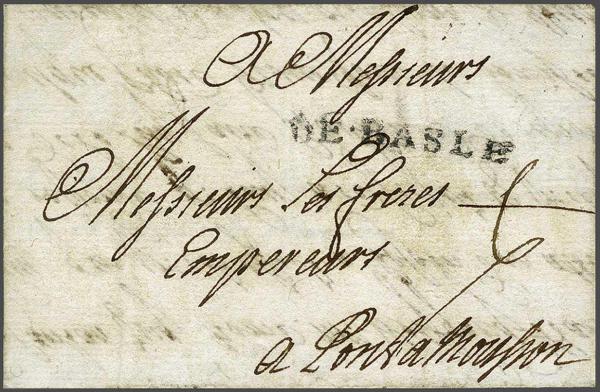 A Messieurs
DE·BASLE
Messieurs Les freres
Empereurs
a Pont a Mousson